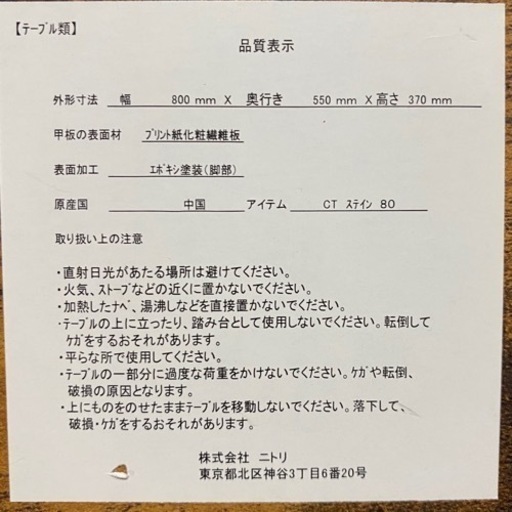 【ﾃｰﾌﾞﾙ類】
品質表示
外形寸法 幅 800 mm X 奥行き 550 mm X 高さ 370 mm
甲板の表面材 ﾌﾟﾘﾝﾄ紙化粧繊維板
表面加工 ｴﾎﾟｷｼ塗装(脚部)
原産国 中国 アイテム CT ｽﾃｲﾝ 80
取り扱い上の注意
・直射日光があたる場所は避けてください。
・火気、ストーブなどの近くに置かないでください。
・加熱したナベ、湯沸しなどを直接置かないでください。
・テーブルの上に立ったり、踏み台として使用しないでください。転倒して
ケガをするおそれがあります。
・平らな所で使用してください。
・テーブルの一部分に過度な荷重をかけないでください。ケガや転倒、
破損の原因となります。
・上にものをのせたままテーブルを移動しないでください。落下して、
破損・ケガをするおそれがあります。
株式会社 ニトリ
東京都北区神谷3丁目6番20号